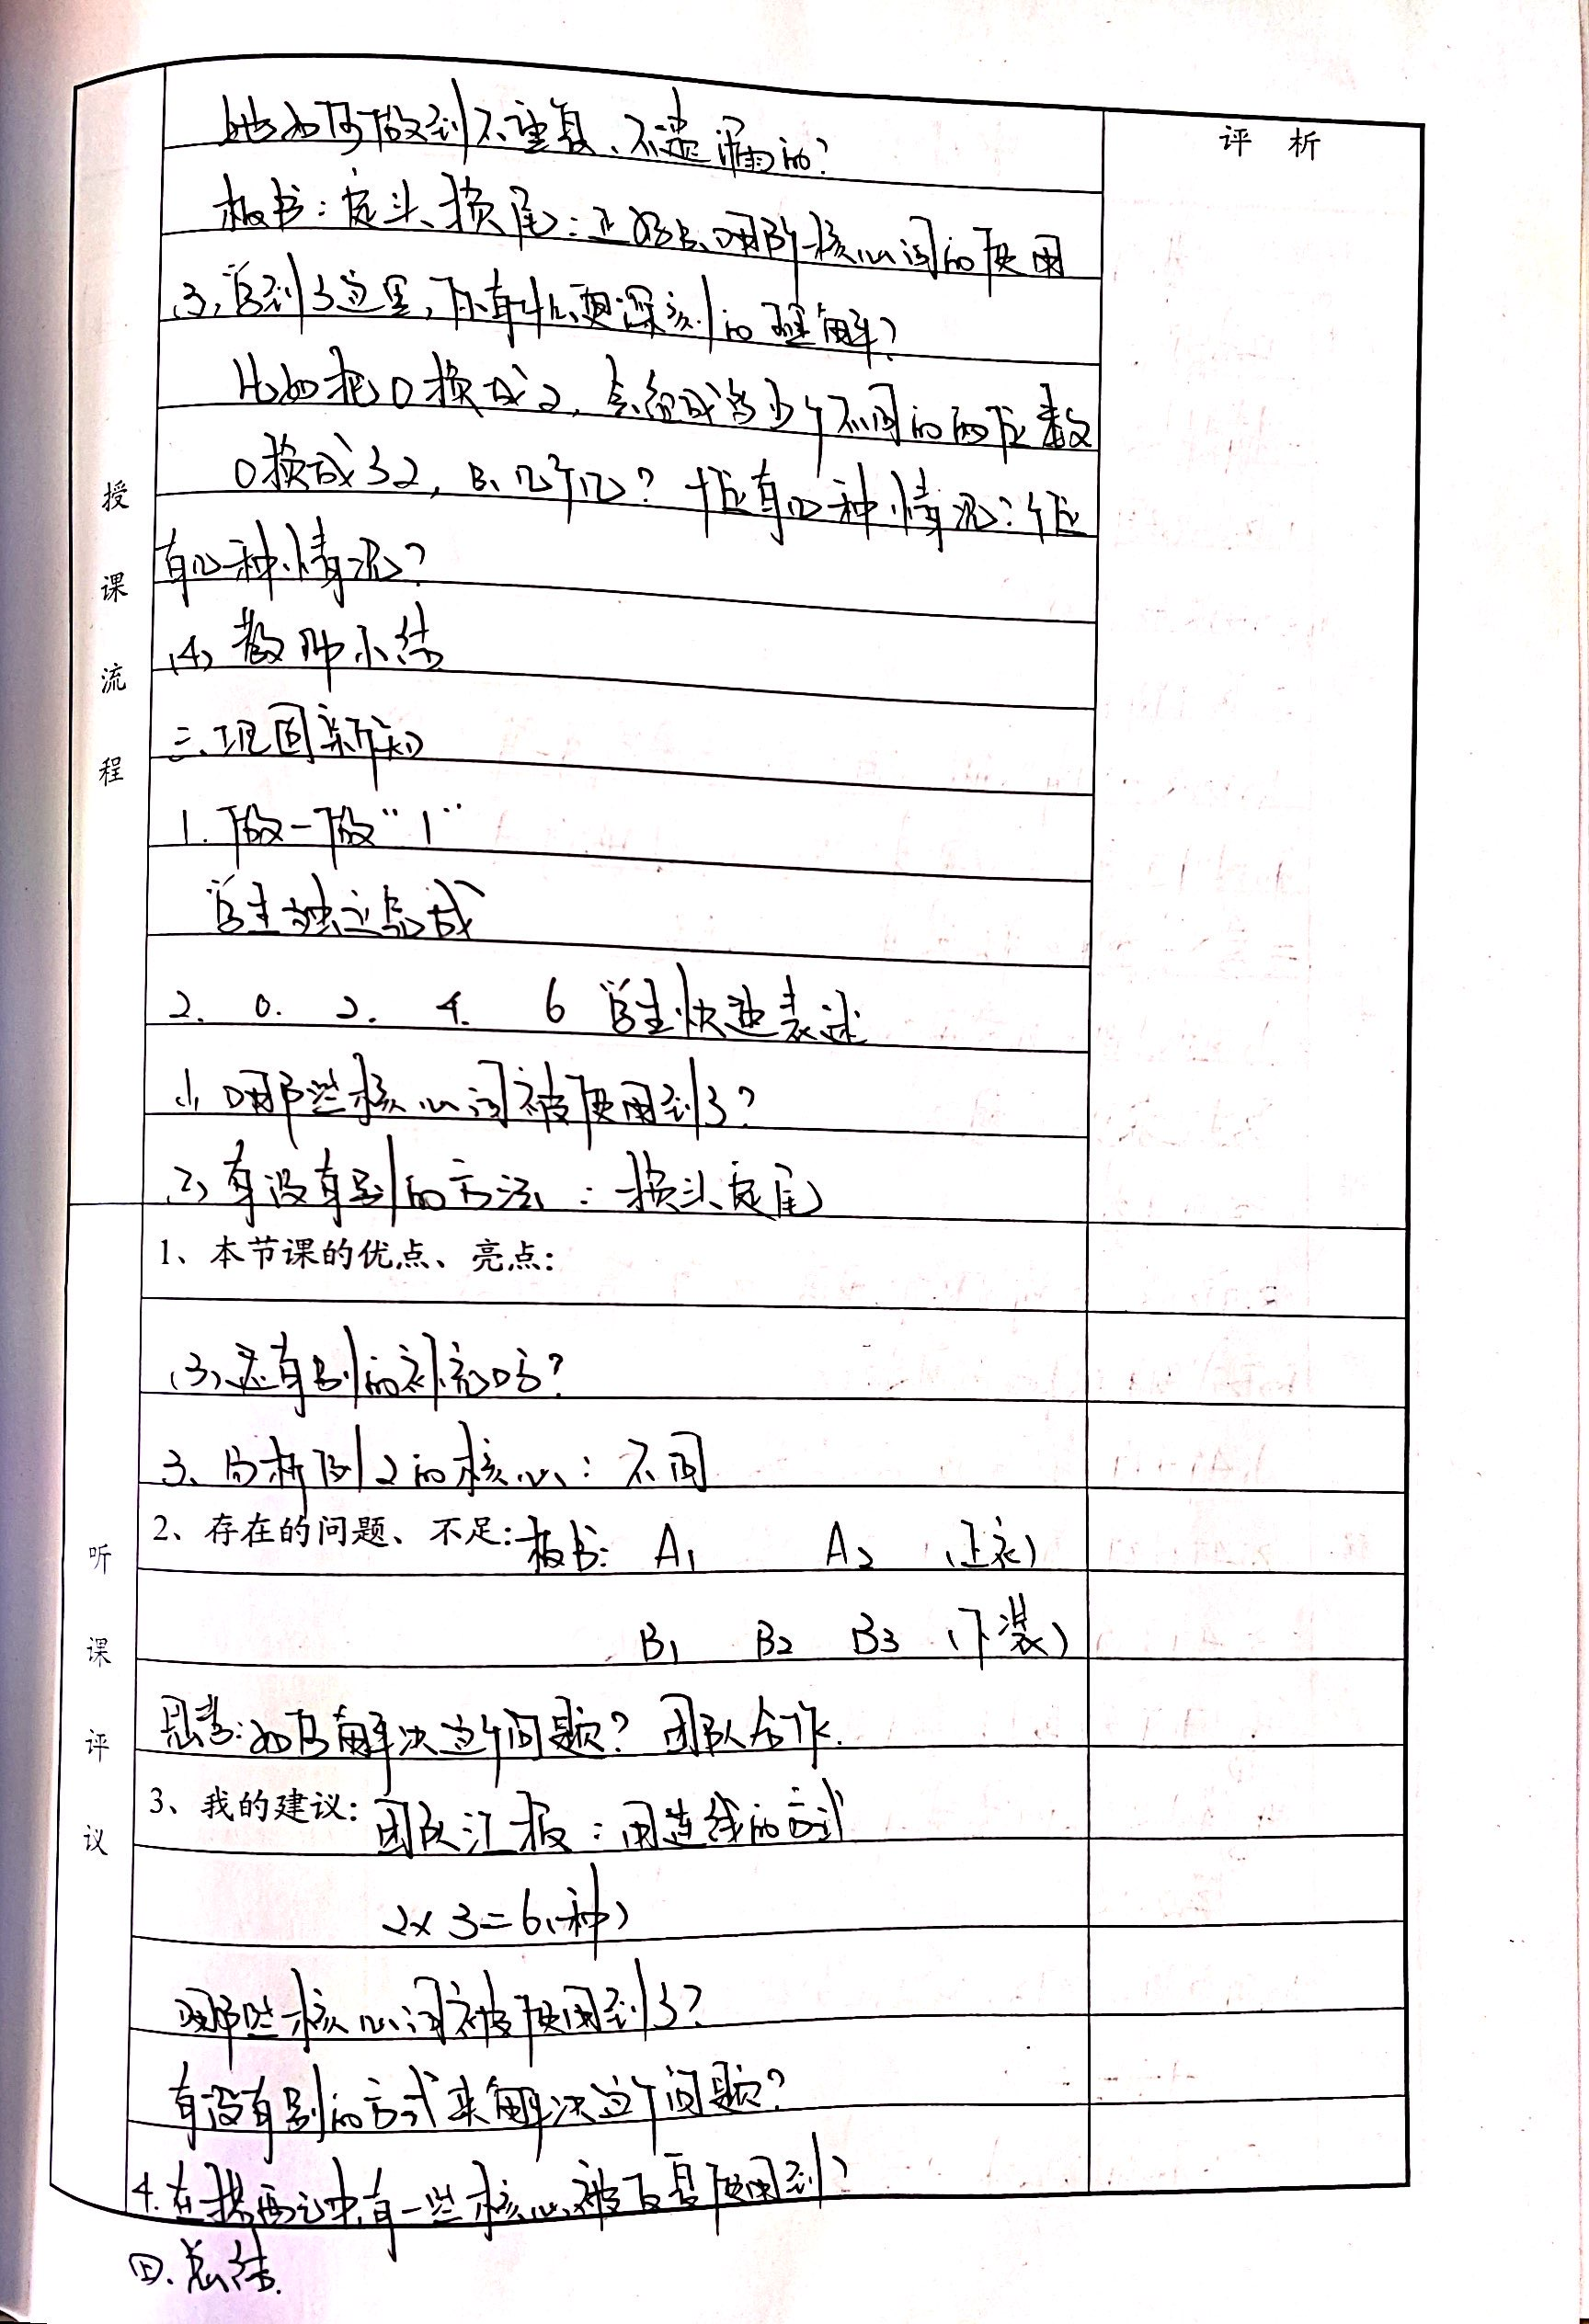 评析
授课流程
她如何做到不重复、不遗漏的?
板书:定头、换尾:正好是哪个核心词的使用
(3)、写到了这里,有什么更深刻的理解?
比如把0换成2,会组成多少个不同的两位数
0换成了2,是几个几?十位有几种情况?个位
有几种情况?
(4)教师小结
三、巩固新知
1. 做一做“1”
学生独立完成
2. 0. 2. 4. 6 学生快速表述
(1) 哪些核心词被使用到了?
(2) 有没有别的方法:换头定尾
听课评议
1、本节课的优点、亮点:
(3)、还有别的补充吗?
3、分析例2的核心:不同
2、存在的问题、不足:板书: A1 A2 (上衣)
B1 B2 B3 (下装)
思考:如何解决这个问题?团队合作.
3、我的建议:团队汇报:用连线的方式
2×3=6(种)
哪些核心词被使用到了?
有没有别的方式来解决这个问题?
4. 在搭配之中,有一些核心被反复使用到?
四. 总结.